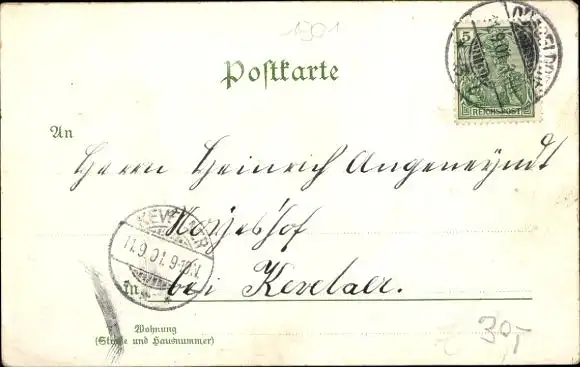 1901
5
REICHSPOST
Postkarte
An
Herrn Heinrich Angeneyndt
KEVELAER
11.9.01.9-10.V.
bei Kevelaer.
In
Wohnung
(Straße und Hausnummer)
30,-